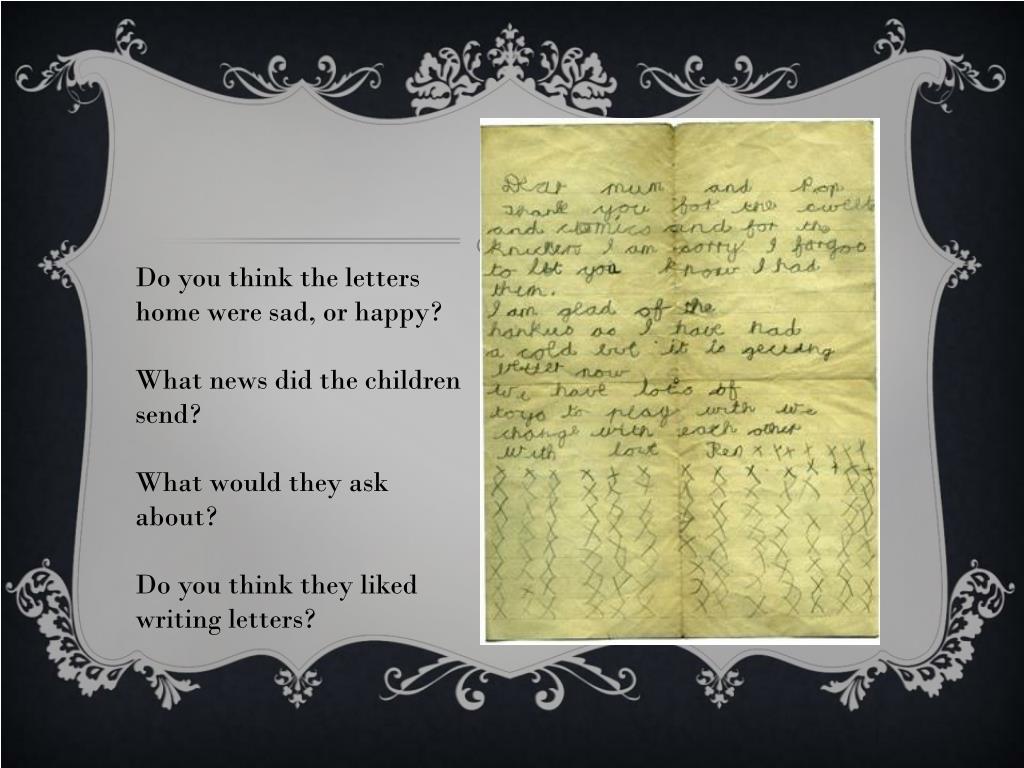 Do you think the letters
home were sad, or happy?
What news did the children
send?
What would they ask
about?
Do you think they liked
writing letters?
Dear mum and Pop
Thank you for the sweets
and comics and for the
knickers I am sorry I forgoo
to let you know I had
them.
I am glad of the
hankies as I have had
a cold but it is getting
better now
We have lots of
toys to play with we
change with each other
with love Ren x x x x x x x